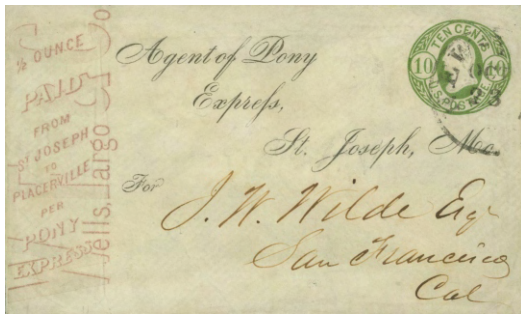 ½ OUNCE
PAID
FROM
ST JOSEPH
TO
PLACERVILLE
PER
PONY
EXPRESS
Wells, Fargo & Co
Agent of Pony
Expreſs,
St. Joseph, Mo.
For
J. W. Wilde Esqr
San Francisco
Cal
TEN CENTS
10 10
U.S. POSTAGE